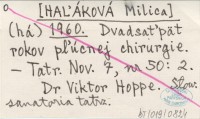 [HAĽÁKOVÁ Milica]
(há) 1960. Dvadsaťpäť
rokov pľúcnej chirurgie.
– Tatr. Nov. 7, no 50: 2.
Dr Viktor Hoppe. Slov.
sanatoria tatr.